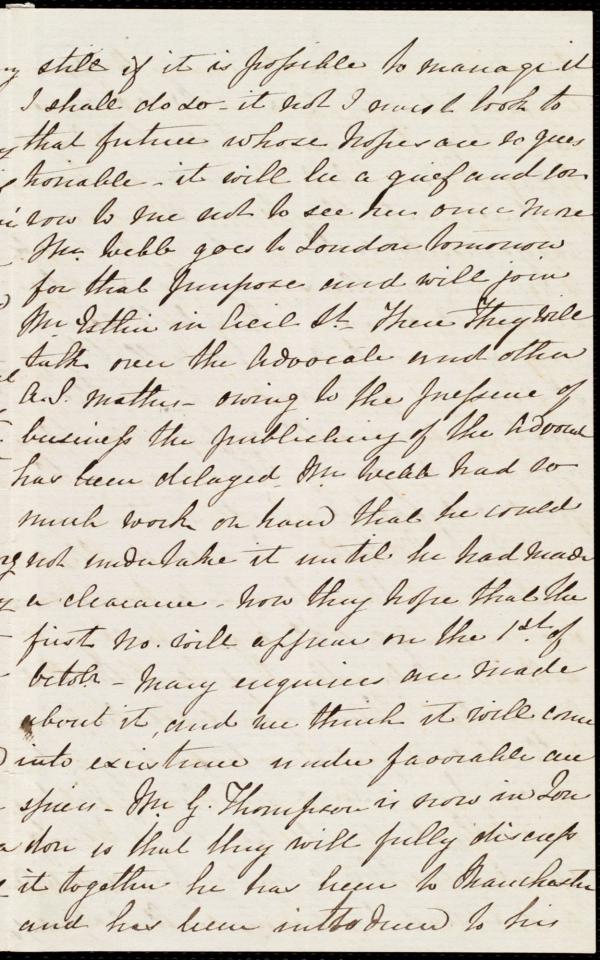 still if it is possible to manage it
I shall do so - it not I must look to
that future whose hopes are so ques
tionable - it will be a grief and sor
row to me not to see her once more
Mr. Webb goes to London tomorrow
for that purpose and will join
Mr Estlin in Cecil St. There they will
talk over the Advocate and other
A.S. matters - owing to the pressure of
business the publishing of the Advocate
has been delayed Mr Webb had so
much work on hand that he could
not undertake it until he had made
a clearance - now they hope that the
first No. will appear on the 1st. of
Octobr - Many enquiries are made
about it, and we think it will come
into existence under favorable au
spices - Mr G. Thompson is now in Lon
don so that they will fully discuss
it together he has been to Manchester
and has been introduced to his